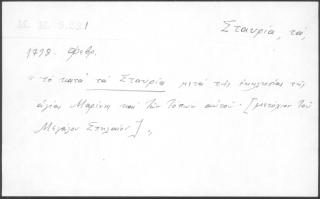 Σταυρία, τά,
1798. Φεβρ.
"τό κατά τά Σταυρία μετά τῆς ἐκκλησίας τῆς
ἁγίας Μαρίνης καί τῶν τόπων αὐτοῦ. [μετόχιον τοῦ
Μεγάλου Σπηλαίου] "